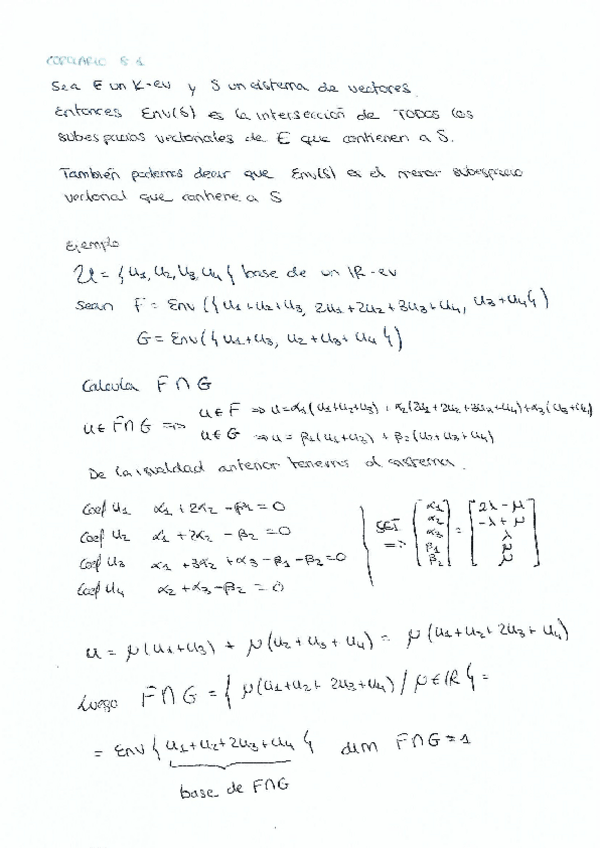 COROLARIO 8.1
Sea E un K-ev y S un sistema de vectores.
Entonces Env(S) es la intersección de TODOS los
subespacios vectoriales de E que contienen a S.
También podemos decir que Env(S) es el menor subespacio
vectorial que contiene a S
Ejemplo
U = {u1, u2, u3, u4} base de un IR-ev
sean F = Env ({u1+u2+u3, 2u1+2u2+3u3+u4, u3+u4})
G = Env({u1+u3, u2+u3+u4})
Calcula F∩G
u∈F∩G => u∈F => u=α1(u1+u2+u3)+α2(2u1+2u2+3u3+u4)+α3(u3+u4)
u∈G => u=β1(u1+u3)+β2(u2+u3+u4)
De la igualdad anterior tenemos el sistema.
Coef u1 α1+2α2-β1=0
Coef u2 α1+2α2-β2=0
Coef u3 α1+3α2+α3-β1-β2=0
Coef u4 α2+α3-β2=0
SCI => [α1 α2 α3 β1 β2] = [2λ-μ -λ+μ λ μ μ]
u = μ(u1+u3) + μ(u2+u3+u4) = μ(u1+u2+2u3+u4)
Luego F∩G = {μ(u1+u2+2u3+u4) / μ∈IR} =
= Env{u1+u2+2u3+u4} dim F∩G=1
base de F∩G